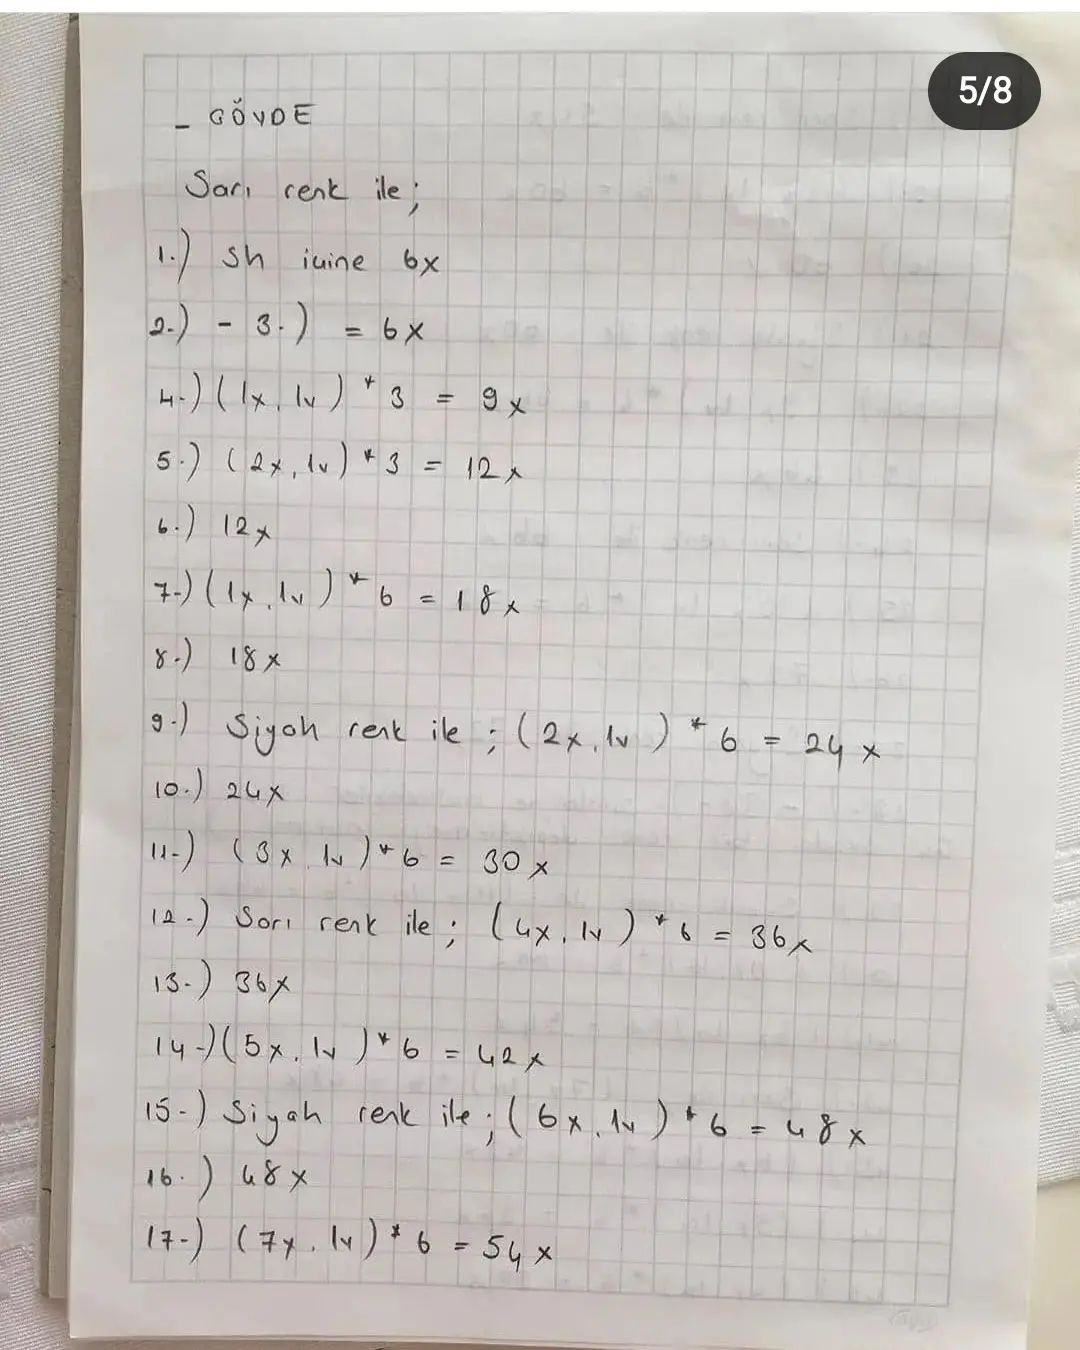 5/8
- GÖVDE
Sarı renk ile;
1.) sh içine 6x
2.) - 3.) = 6x
4.) (1x, 1v) * 3 = 9x
5.) (2x, 1v) * 3 = 12x
6.) 12x
7.) (1x, 1v) * 6 = 18x
8.) 18x
9.) Siyah renk ile; (2x, 1v) * 6 = 24x
10.) 24x
11.) (3x 1v) * 6 = 30x
12.) Sarı renk ile; (4x, 1v) * 6 = 36x
13.) 36x
14.) (5x, 1v) * 6 = 42x
15.) Siyah renk ile; (6x, 1v) * 6 = 48x
16.) 48x
17.) (7x, 1v) * 6 = 54x